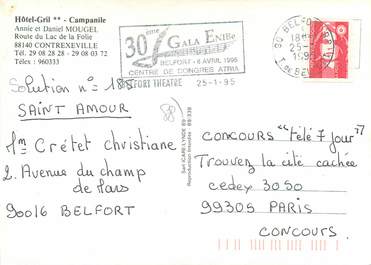 Hôtel-Gril ** - Campanile
Annie et Daniel MOUGEL
Route du Lac de la Folie
88140 CONTREXEVILLE
Tél. 29 08 28 28 - 29 08 03 72
Télex : 960333
30ème GALA ENIBe
BELFORT - 8 AVRIL 1995
CENTRE DE CONGRES ATRIA
BELFORT THEATRE 25-1-95
90 BELFORT
18H
25-1
1995
T. DE BELFORT
Solution n° 18
SAINT AMOUR
Crétet christiane
2. Avenue du champ
de Mars
90016 BELFORT
Sarl ICARE-LYNDE 89-
Reproduction Interdite 88-338
CONCOURS "Télé 7 jour"
Trouvez la cité cachée
cedex 3050
99305 PARIS
CONCOURS